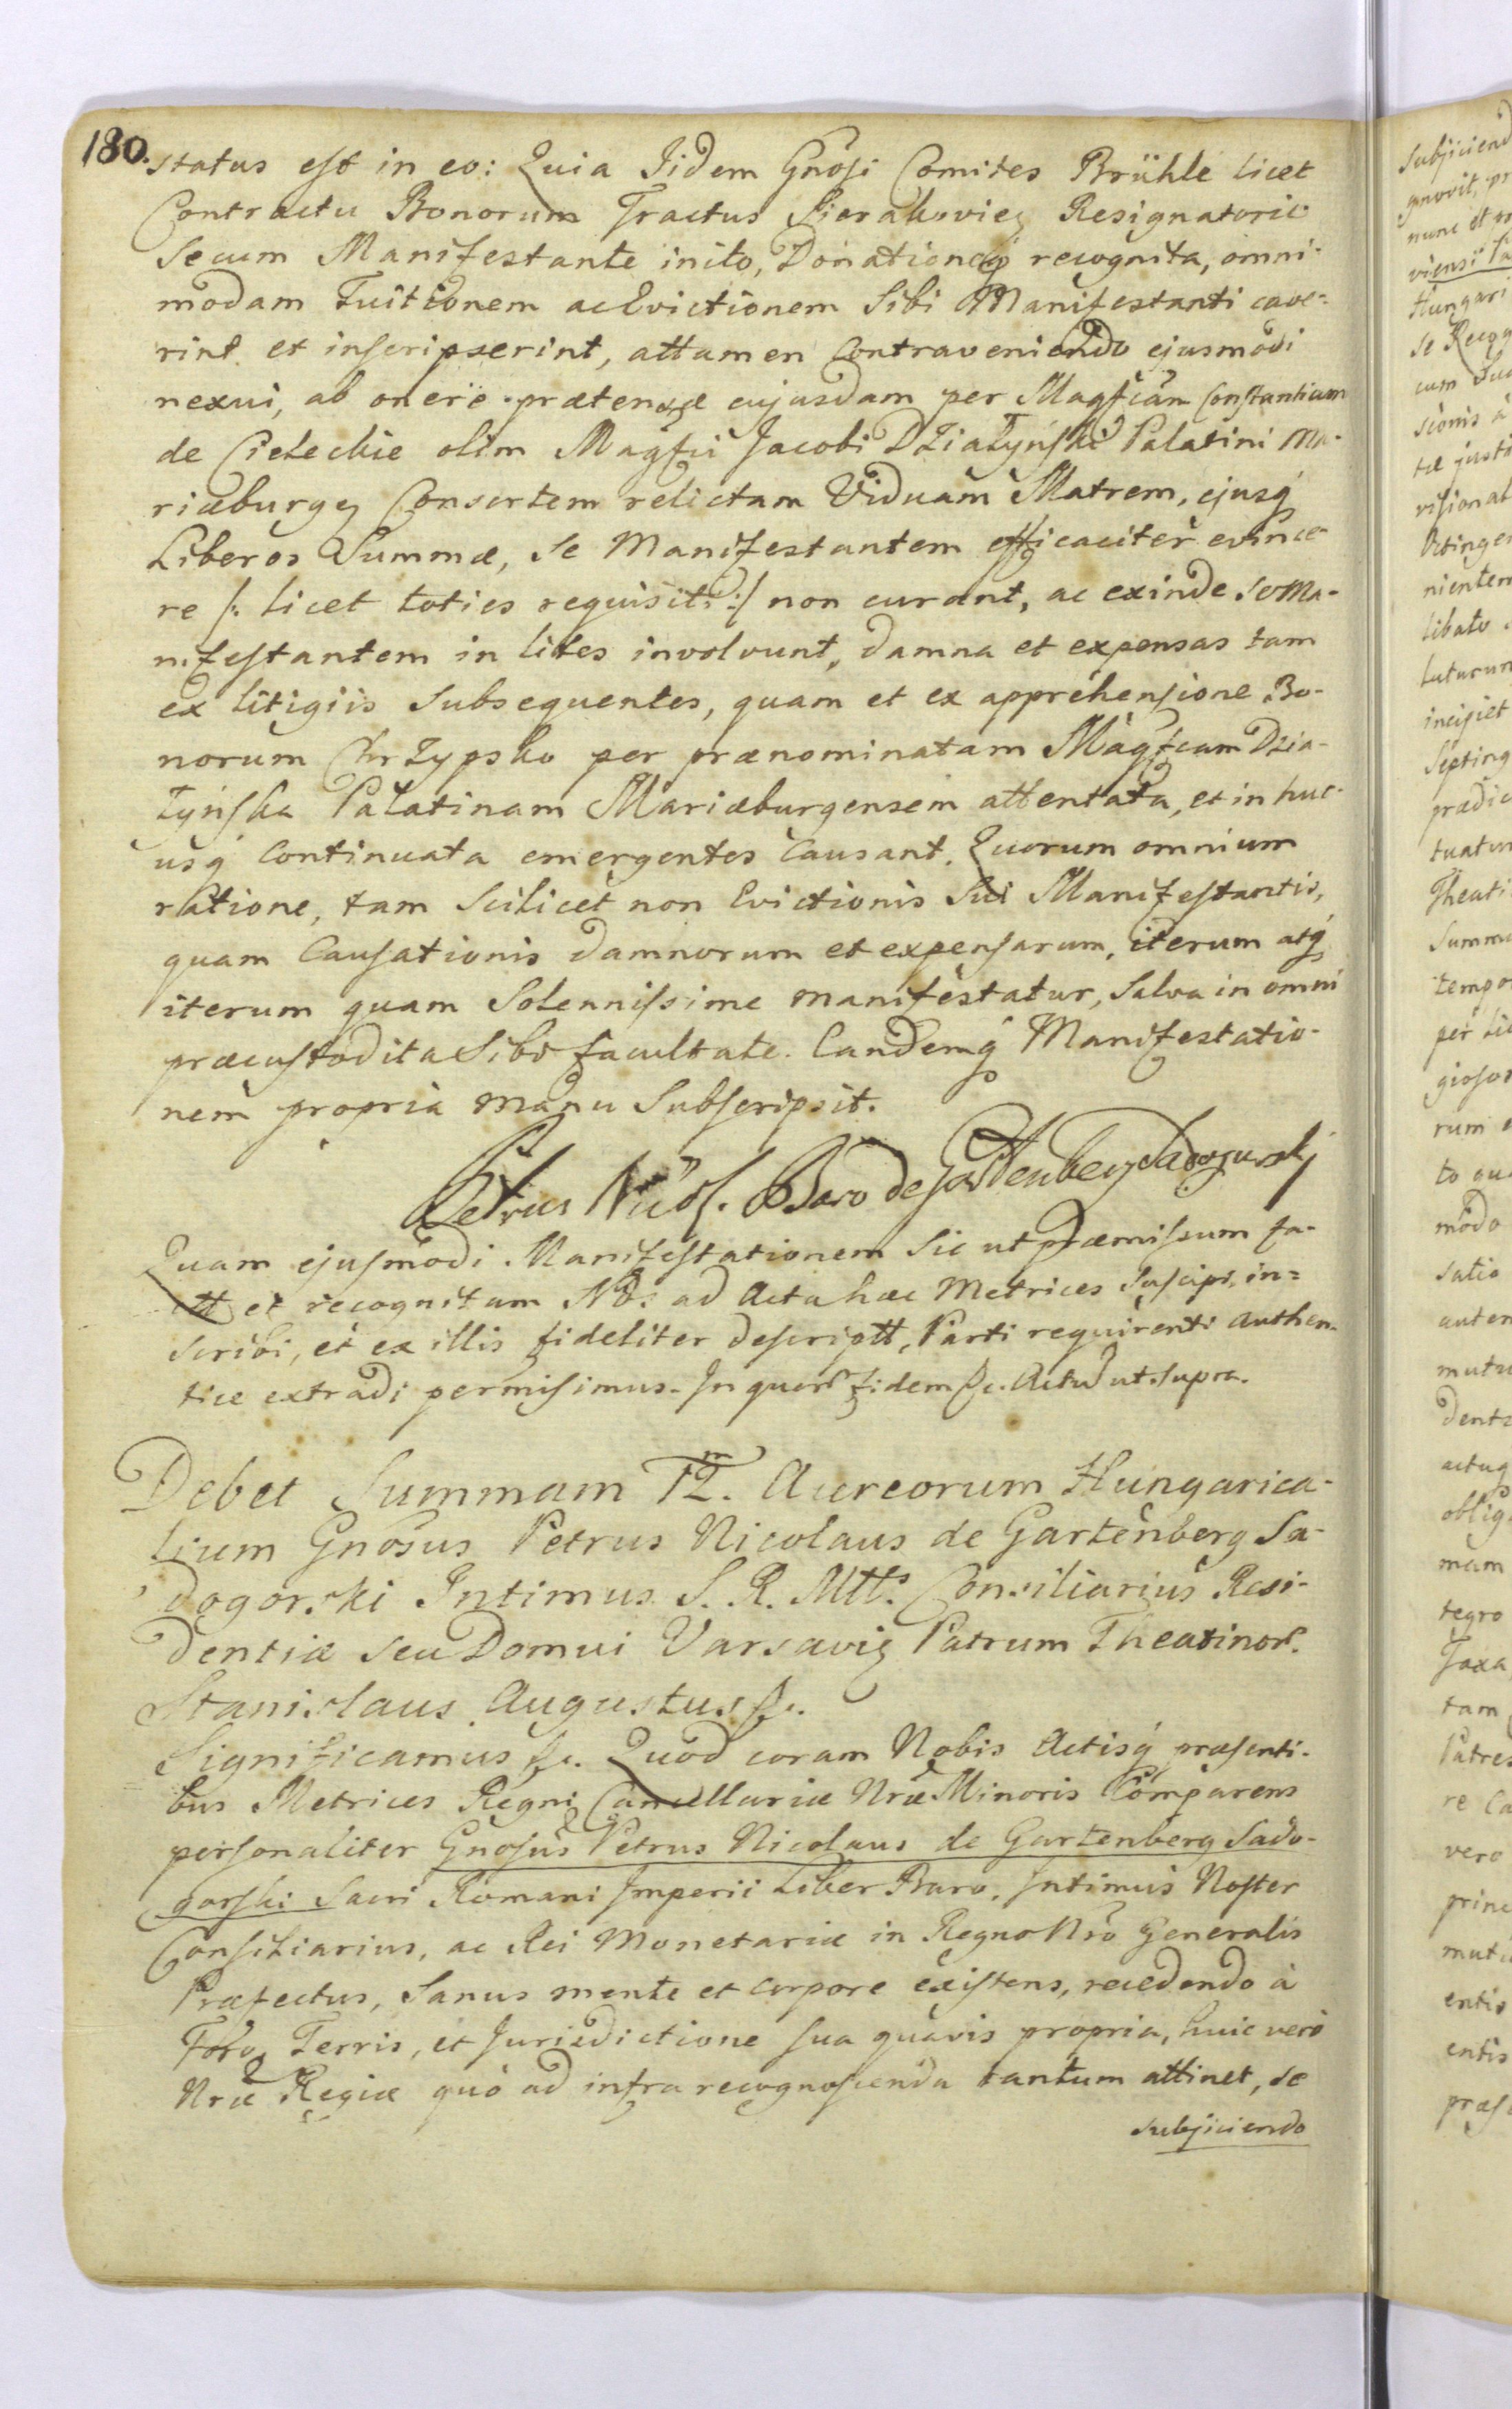 180.
status est in eo: Quia Iidem Gnosi Comites Brühle licet
Contractu Bonorum Tractus Sierakovien Resignatorio
Secum Manifestante inito, Donationeq recognita, omni-
modam Tuitionem ac Evictionem Sibi Manifestanti cave-
rint et inscripserint, attamen Contraveniendo ejusmodi
nexui, ab onere prætensæ cujusdam per Magficam Constantiam
de Cieleckie olim Magfci Jacobi Działyński Palatini Ma-
riæburgen Consortem relictam Viduam Matrem, ejusq
Liberos Summæ, Se Manifestantem efficaciter evince-
re /: licet toties requisiti :/ non curant, ac exinde Se Ma-
nifestantem in lites involvunt, damna et expensas tam
ex litigiis Subsequentes, quam et ex apprehensione Bo-
norum Chrzypsko per prænominatam Magficam Dzia-
łyńska Palatinam Mariæburgensem attentata, et in huc-
usq Continuata emergentes Causant. Quorum omnium
ratione, tam Scilicet non Evictionis Sui Manifestantis,
quam Causationis damnorum et expensarum, iterum atq
iterum quam Solennissime manifestatur, Salva in omni
præcustodita Sibi facultate. Eandemq Manifestatio-
nem propria manu Subscripsit.
Petrus Nicol. Baro de Gartenberg Sadogurskj
Quam ejusmodi Manifestationem Sic ut præmissum fa-
ctt et recognitam Nos ad Acta hæc Metrices Suscipi, in=
scribi, et ex illis fideliter descriptt, Parti requirenti authen-
tice extradi permisimus. In quor fidem &c. Actu ut Supra.
Debet Summam 12.m Aureorum Hungarica-
lium Gnosus Petrus Nicolaus de Gartenberg Sa-
dogorski Intimus S. R. Mtts Consiliarius Resi-
dentiæ seu Domui Varsavien Patrum Theatinor.
Stanislaus Augustus &c.
Significamus &c. Quod coram Nobis Actisq præsenti-
bus Metrices Regni Cancellariæ Nræ Minoris Comparens
personaliter Gnosus Petrus Nicolaus de Gartenberg Sado-
gorski Sacri Romani Imperii Liber Baro, Intimus Noster
Consiliarius, ac Rei Monetariæ in Regno Nro Generalis
Præfectus, Sanus mente et corpore existens, recedendo à
Foro, Terris, et Jurisdictione sua quavis propria, huic vero
Nræ Regiæ quò ad infra recognoscenda tantum attinet, se
subjiciendo